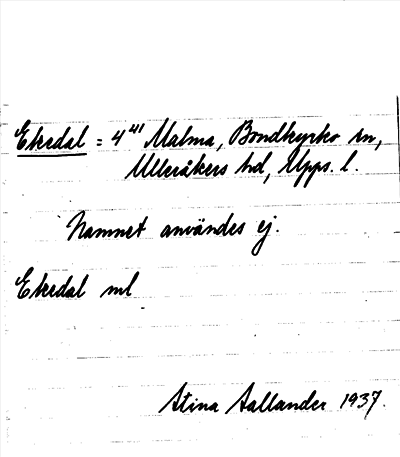 Ekedal = 4⁴¹ Malma, Bondkyrko sn,
Ulleråkers hd, Upps. l.
Namnet användes ej.
Ekedal ml
Stina Aallander 1937.